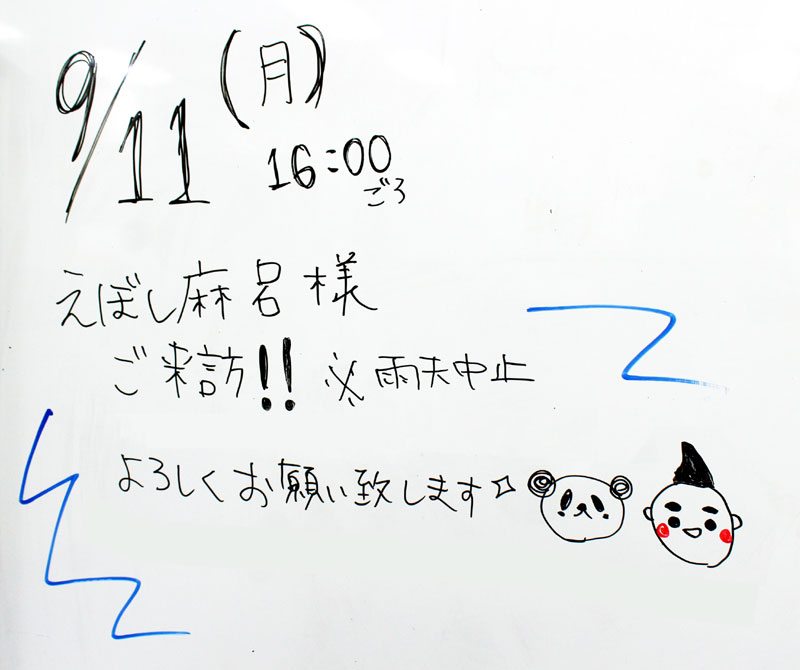 9/11(月)
16:00
ごろ
えぼし麻呂様
ご来訪!! ※雨天中止
よろしくお願い致します☆